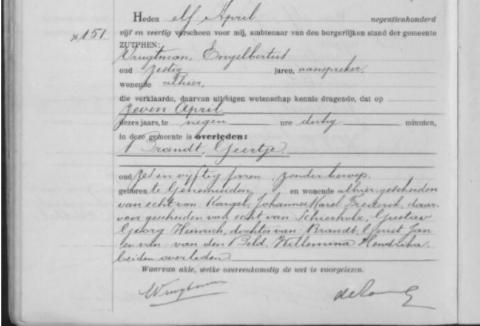 Heden elf April negentienhonderd
vijf en veertig verscheen voor mij, ambtenaar van den burgerlijken stand der gemeente
No 151. ZUTPHEN:
Vrugtman, Engelbertus
oud zestig jaren, aanspreker,
wonende alhier,
die verklaarde, daarvan uit eigen wetenschap kennis dragende, dat op
zeven April
dezes jaars, te negen ure dertig minuten,
in deze gemeente is overleden:
Brandt, Geertje
oud zes en vijftig jaren, zonder beroep,
geboren te Genemuiden, en wonende alhier, gescheiden
van echt van Kargel, Johannes Karel Frederik, daar-
voor gescheiden van echt van Schierholz, Gustav
Georg Heinrich, dochter van Brandt, Gerrit Jan
en van van den Veld, Willemina Hendrika,
beiden overleden
Waarvan akte, welke overeenkomstig de wet is voorgelezen.
Vrugtman